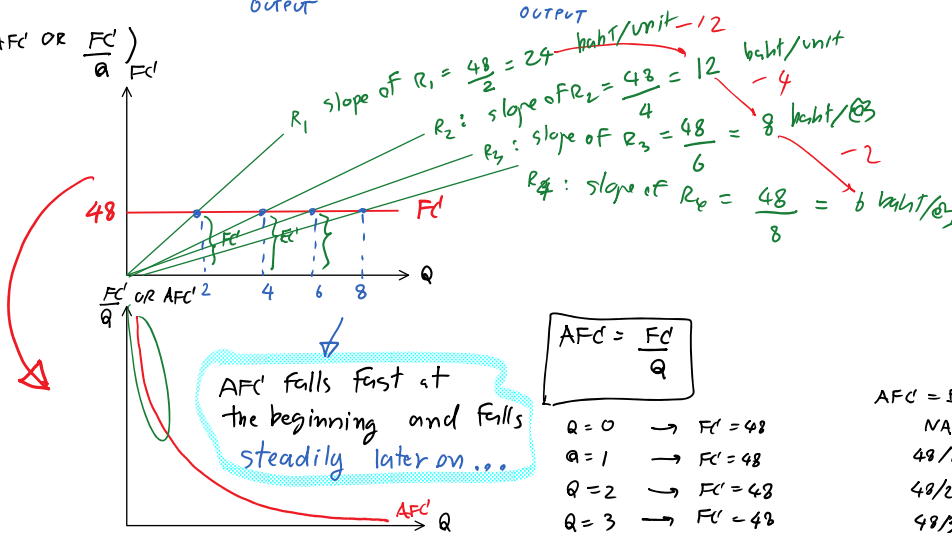 OUTPUT
OUTPUT
AFC' OR FC'/Q )
FC'
R1 slope of R1 = 48/2 = 24 baht/unit -12
R2 : slope of R2 = 48/4 = 12 baht/unit
-4
R3 : slope of R3 = 48/6 = 8 baht/
-2
R4 : slope of R4 = 48/8 = 6 baht/
48
FC'
FC'
FC'
Q
2 4 6 8
FC'/Q OR AFC'
AFC' Falls Fast at
the beginning and Falls
steadily later on ...
AFC'
Q
AFC' = FC'/Q
AFC' =
Q = 0 → FC' = 48 NA
Q = 1 → FC' = 48 48/
Q = 2 → FC' = 48 48/2
Q = 3 → FC' = 48 48/3